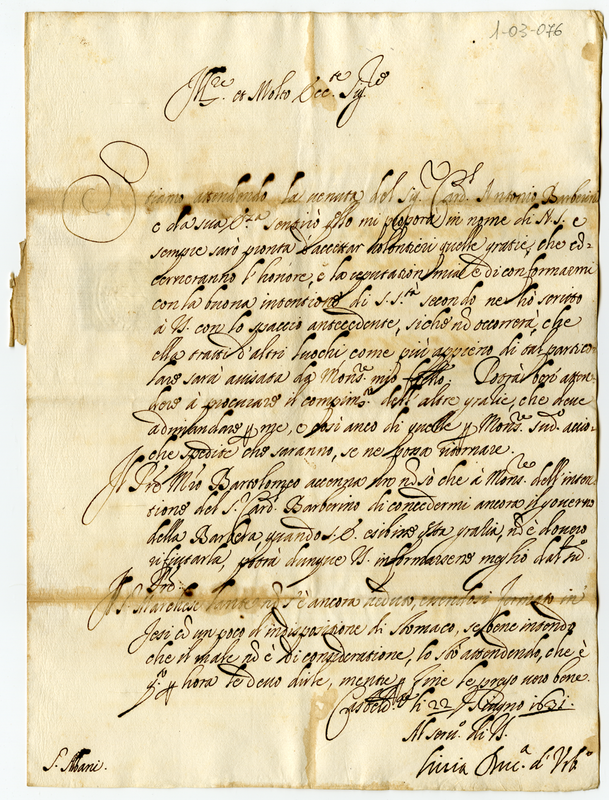 1-03-076
Ill.re et Molto Ecc.te Sig.re
Stiamo attendendo la venuta del Sig.r Card.l Antonio Barberino
e da sua Em.za sentirò q.llo mi proporà in nome di N. S. e
sempre sarò pronta d'accettar volontieri quelle gratie, che con-
cerneranno l'honore, e la reputation mia e di conformarmi
con la buona intentione di S. S.tà secondo ne ho scritto
à V. con lo spaccio antecedente, siche nõ occorrerà, che
ella tratti d'altri luochi come più appieno di tal partico-
lare sarà avisata da Mons.re mio Potrà ben atten-
dere à procurare il compim.to dell'altre gratie, che deve
admandare p me, e così anco di quelle p Mons.re sud.o accio-
che spedite che saranno, se ne possa ritornare.
Il P.re M.ro Bartolomeo accenna nõ sò che à Mons.re dell'inten-
tione del S. Card. Barberino di concedermi ancora il governo
della Barbara, quando S. E. esibisca q.sta gratia, nõ è dovero
rifiutarla, potrà dunque V. informarsene meglio dal sud.o
P.re:
Il S. Marchese nõ s'è ancora veduto, essendosi fermato in
Jesi cõ un poco d'indispositione di stomaco, se bene intendo
che il male nõ è di consideratione, lo stò attendendo, che è
q.to p hora le devo dirle, mentre p fine le prego vero bene.
li 22 Giugno 1631.
Al serv.o di V.
Livia Duc.a d'Urb.o
S. Albani.